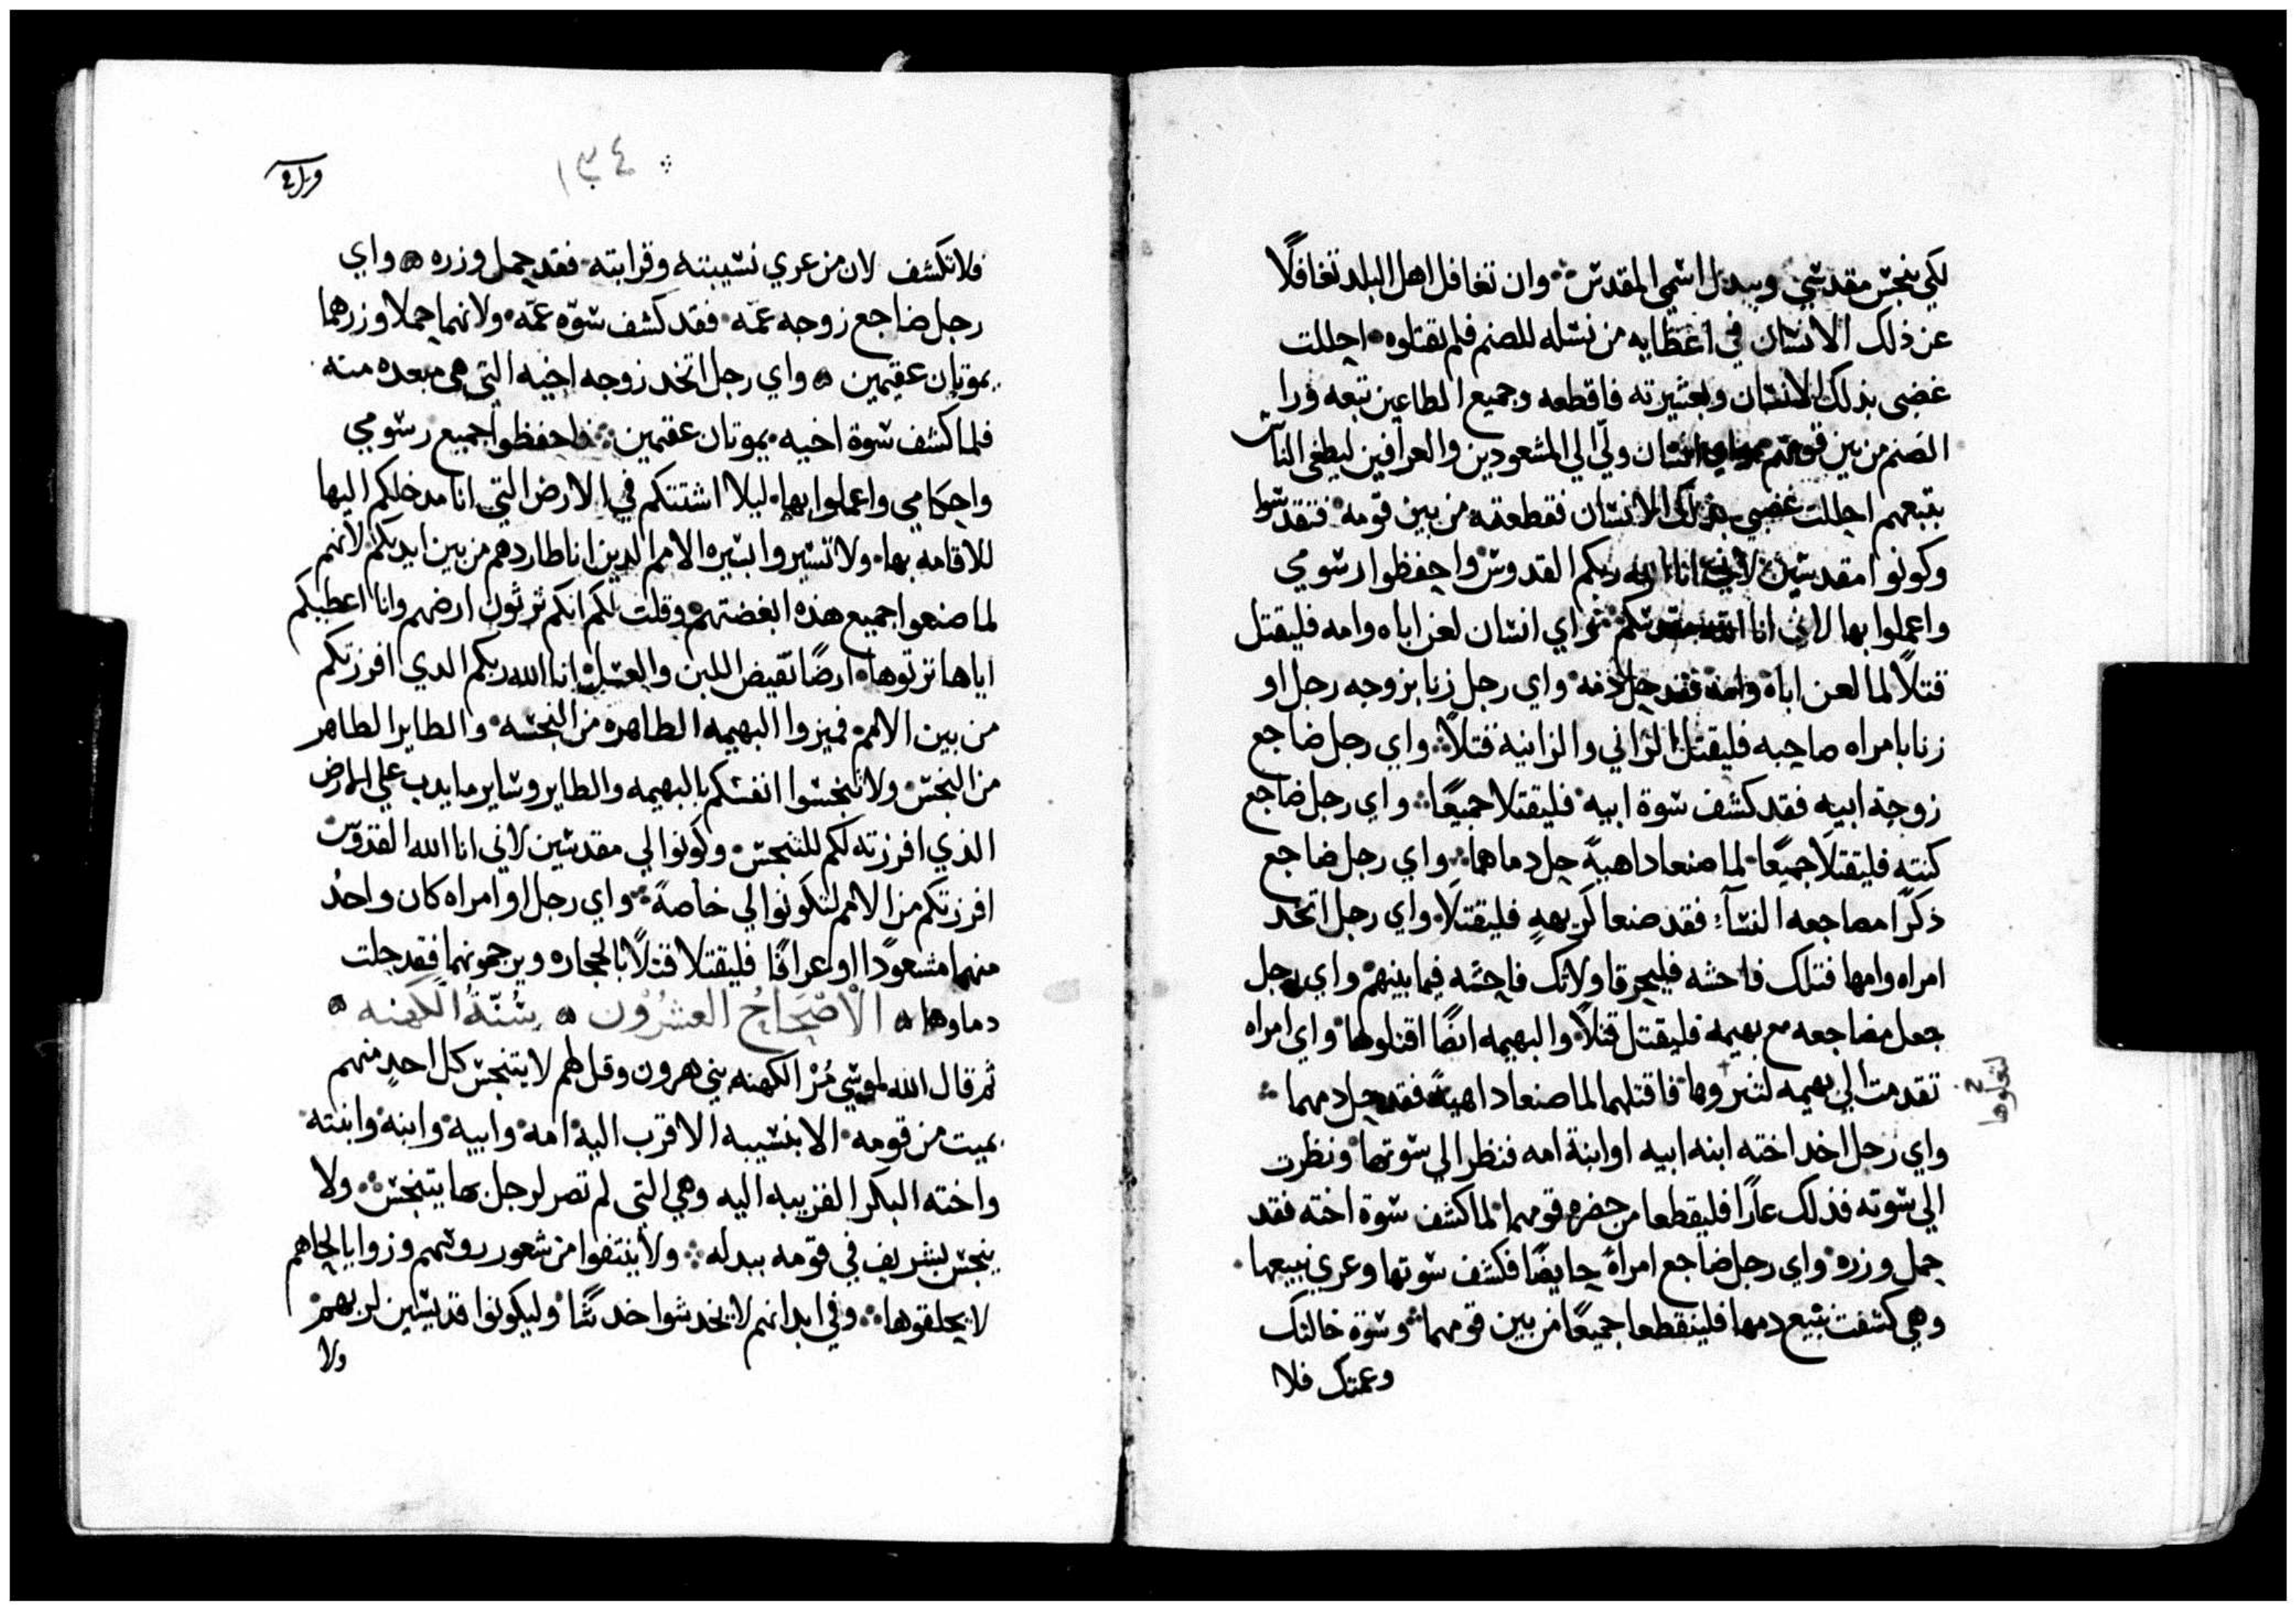 لكي ينجس مقدسي ويبدل اسمي المقدس وان تغافل اهل البلد تغافلًا
عن ذلك الانسان في اعطايه من نسله للصنم فلم يقتلوه احللت
غضبي بذلك الانسان وبعشيرته فاقطعه وجميع الطاعين تبعه ورا
الصنم من بين قومهم انسان ولّي الي المشعودين والعرافين ليطغي الناس
بتبعهم احللت غضبي بذلك الانسان فقطعته من بين قومه فتقدسوا
وكونوا مقدسين لأني انا الله ربكم القدوس واحفظوا رسومي
واعملوا بها لاني انا الله مقدسكم واي انسان لعن اباه وامه فليقتل
قتلًا لما لعن اباه وامه فقد حل دمه واي رجل زنا بزوجه رجل او
زنا بامراه صاحبه فليقتل الزاني والزانية قتلاً واي رجل ضاجع
زوجة ابيه فقد كشف سوة ابيه فليقتلا جميعًا واي رجل ضاجع
كنته فليقتلا جميعًا لما صنعا داهيةً حل دماهما واي رجل ضاجع
ذكرًا مضاجعه النسآء فقد صنعا كريههٍ فليقتلَا واي رجل اتخد
امراه وامها فتلك فاحشه فليحرقا ولاتك فاحشه فيما بينهم واي رجل
جعل مضاجعه مع بهيمه فليقتل قتلاً والبهيمه ايضًا اقتلوها واي امراه
تقدمت الي بهيمه لتنزوها فاقتلهما لما صنعا داهيةً فقد حل دمهما
لتعلوها
واي رجل اخد اخته ابنه ابيه او ابنة امه فنظر الي سوتها ونظرت
الي سوته فذلك عارًا فليقطعا من حضره قومهما لما كشف سوة اخته فقد
حمل وزره واي رجل ضاجع امراةً حايضًا فكشف سوتها وعري نبيعها
وهي كشفت نبيع دمها فلينقطعا جميعًا من بين قومهما وسوة خالتك
وعمتك فلا
١٣٤
فلا تكشف لان من عري نسيبته وقرابته فقد حمل وزره واي
رجل ضاجع زوجه عمّه فقد كشف سوّه عمّه ولانهما حملا وزرهما
يموتان عقيمين واي رجل اتخد زوجه اخيه التي هي مبعده منه
فلما كشف سوة اخيه يموتان عقيمين فاحفظوا جميع رسومي
واحكامي واعملوا بها ليلا اشتتكم في الارض التي انا مدخلكم اليها
للاقامه بها ولا تسيروا بسيره الامم الدين انا طاردهم من بين ايديكم لانهم
لما صنعوا جميع هذه ابغضتهم وقلت لكم انكم ترثون ارضهم وانا اعطيكم
اياها ترتوها ارضًا تفيض اللبن والعسل انا الله ربكم الدي افرزتكم
من بين الامم فميزوا البهيمه الطاهره من النجسه والطاير الطاهر
من النجس ولا تنجسوا انفسكم بالبهيمه والطاير وساير ما يدب علي الارض
الذي افرزته لكم للنجس وكونوا لي مقدسين لاني انا الله القدوس
افرزتكم من الامم لتكونوا لي خاصةً واي رجل او امراه كان واحدُ
منهما مشعودًا او عرافًا فليقتلا قتلًا بالحجاره ويرجمونهما فقد حلت
دماوهما الْاصْحَاحُ العشْرُوْن سُنّةُ الكَهنه
ثم قال الله لموسي مُرْ الكهنه بني هرون وقل لهم لا يتنجس كل احدٍ منهم
بميت من قومه الا بنسيبه الاقرب اليه امه وابيه وابنه وابنته
واخته البكر القريبه اليه وهي التي لم تصر لرجل بها يتنجس ولا
ينجس بشريف في قومه ببدله ولا ينتفوا من شعور روسهم وزوايا لحاهم
لا يحلقوها وفي ابدانهم لا يخدشوا خدشًا وليكونوا قديسين لربهم
ولا